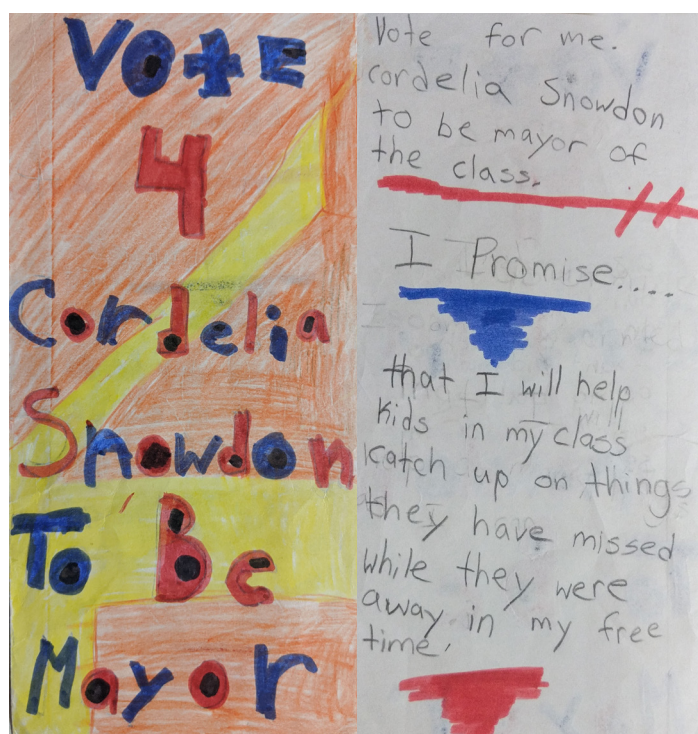 Vote
4
Cordelia
Snowdon
To Be
Mayor
Vote for me.
Cordelia Snowdon
to be mayor of
the class.
I Promise....
that I will help
kids in my class
catch up on things
they have missed
while they were
away in my free
time.